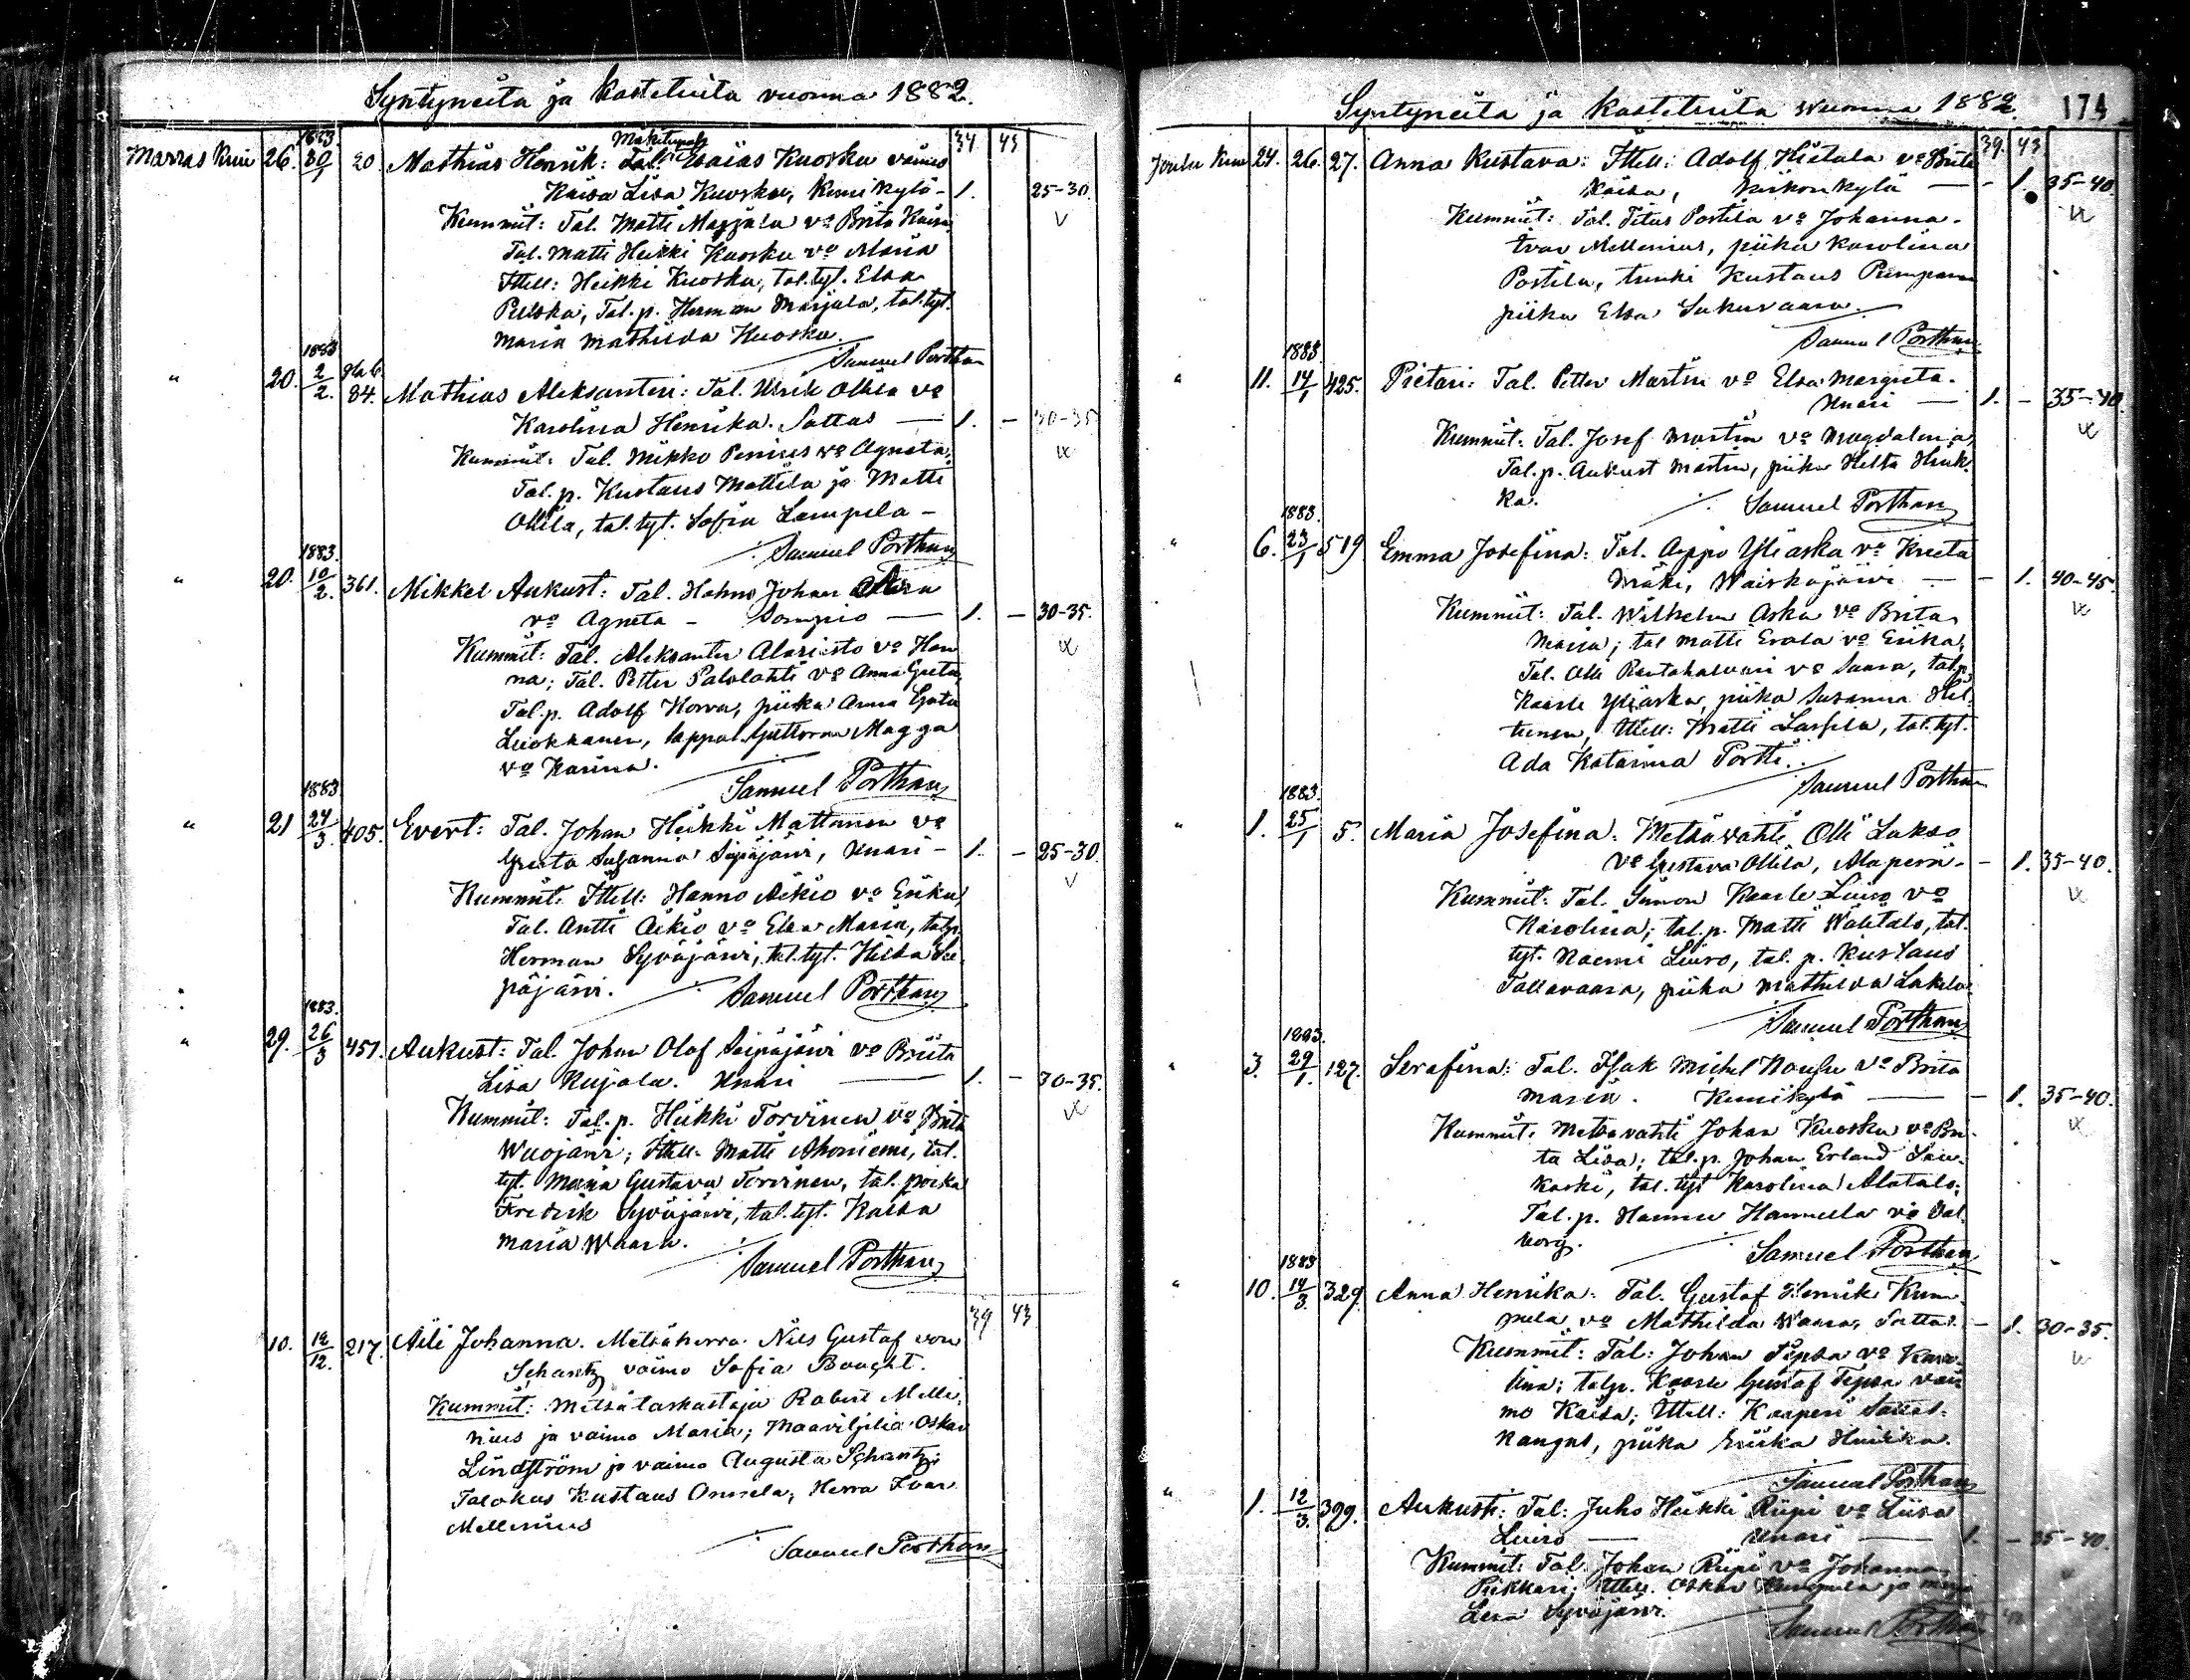 Syntyneitä ja kastetuita vuonna 1882.
Marras kuu 26. 1883 30/1 20. Mathias Henrik: Tal. Mäkitupal. Esaias Kuosku vaimo 37 43
Kaisa Lisa Kuosku, Kemikylä - 1. 25-30.
Kummit: Tal. Matti Marjala vo Brita Kaisa
Tal. Matti Heikki Kuosku vo Maria
Ittell: Heikki Kuosku, tal. tyt. Elsa
Pulska, Tal. p. Herman Marjala, tal. tyt.
Maria Mathilda Kuosku.
Samuel Porthan
" 20. 1883 2/2. 84. Mathias Aleksanteri: Tal. Ulrik Ollila vo
Karolina Henrika. Sattas — 1. - 30-35
Kummit: Tal. Mikko Penius vo Agneta,
Tal. p. Kustaus Mattila ja Matti
Ollila, tal. tyt. Sofia Lampela -
Samuel Porthan
" 20. 1883. 10/2. 361. Mikkel Aukust: Tal. Hannes Johan
vo Agneta - Sompio — 1. - 30-35.
Kummit: Tal. Aleksanter Alariesto vo Han
na; Tal. Petter Palolahti vo Anna Greta,
Tal. p. Adolf Korva, piika Anna Greta
Luokkanen, lappal. Guttorm Magga
vo Karina.
Samuel Porthan
" 21 1883 24/3. 405. Evert: Tal. Johan Heikki Mattanen vo
Greta Susanna Siipäjärvi, Unari - 1. - 25-30.
Kummit: Ittell: Hanno Aikio vo Erika,
Tal. Antti Aikio vo Elsa Maria, tal. p.
Herman Syväjärvi, tal. tyt. Hilda Sii
päjärvi.
Samuel Porthan
" 29. 1883. 26/3 451. Aukust: Tal. Johan Olof Siipäjärvi vo Briita
Lisa Kujala. Unari — 1. - 30-35.
Kummit: Tal. p. Heikki Torvinen vo Brita
Wuojärvi; Ittell. Matti Ahoniemi, tal.
tyt. Maria Gustava Torvinen, tal. poika
Fredrik Syväjärvi, tal. tyt. Kaisa
Maria Waara.
Samuel Porthan
39 43
10. 12/12. 217. Aili Johanna. Metsäherra Nils Gustaf von
Schantz vaimo Sofia Bought.
Kummit: Metsätarkastaja Robert Melle
nius ja vaimo Maria; Maaviljeliä Oskar
Lindström ja vaimo Augusta Schantz;
Talokas Kustaus Onnela; Herra Ivar
Mellenius
Samuel Porthan
Syntyneitä ja kastetuita Wuonna 1882. 174
Joulu kuu 24. 26. 27. Anna Kustava: Ittell: Adolf Hietala vo Brita 39. 43
Kaisa, Kirkonkylä — - 1. 35-40.
Kummit: Tal. Titus Postila vo Johanna.
Ivar Mellenius, piika Karolina
Postila, renki Kustaus Pumpanen
piika Elsa Sakurvaara.
Samuel Porthan
" 11. 1883. 14/1 425. Pietari: Tal. Petter Martin vo Elsa Margreta.
Unari — 1. - 35-40.
Kummit: Tal. Josef Martin vo Magdalena,
Tal. p. Aukust Martin, piika Helka Huk
ka.
Samuel Porthan
" 6. 1883. 23/1 519 Emma Josefina: Tal. Aappo Yliaska vo Kreeta
Mäki, Waiskojärvi — - 1. 40-45.
Kummit: Tal. Wilhelm Aska vo Brita
Maria; tal Matti Erola vo Erika,
Tal. Olli Rautahalvari vo Saara, tal. p.
Kaarle Yliaska, piika Susanna Hil
tunen, Ittell: Matti Lassila, tal. tyt.
Ada Katarina Portti.
Samuel Porthan
" 1. 1883. 25/1 5. Maria Josefina: Metsävahti Olli Lakso
vo Gustava Ollila, Alaperä. - 1. 35-40.
Kummit: Tal. Simon Kaarle Luiro vo
Karolina; tal. p. Matti Wälitalo, tal.
tyt. Naemi Luiro, tal. p. Kustaus
Tallavaara, piika Mathilda Lakela.
Samuel Porthan
" 3. 1883. 29/1. 127. Serafina: Tal. Isak Michel Kangsu vo Brita
Maria. Kemikylä — - 1. 35-40.
Kummit: Metsävahti Johan Kuosku vo Bri
ta Lisa; tal. p. Johan Erland Sau
koski, tal. tyt Karolina Alatalo;
Tal. p. Hannu Hannula vo Val
borg.
Samuel Porthan
" 10. 1883 14/3. 329. Anna Henrika: Tal. Gustaf Henrik Kum
pula vo Mathilda Waara, Sattas - 1. 30-35.
Kummit: Tal: Johan Tepsa vo Karo
lina; tal. p. Kaarle Gustaf Tepsa vai
mo Kaisa; Ittell: Kaaperi Sattas-
kangas, piika Eriika Hukka.
Samuel Porthan
" 1. 12/3. 399. Aukusti: Tal: Juho Heikki Riipi vo Liisa
Luiro — Unari — 1. - 35-40.
Kummit: Tal. Johan Riipi vo Johanna
Pikkari; Ittell. Oskar Kumpula ja
Lisa Syväjärvi.
Samuel Porthan